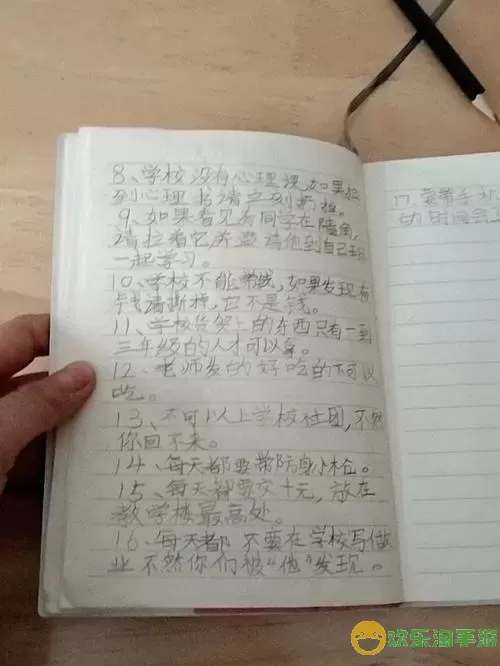 8、学校没有心理课,如果捡
到心理书请立刻扔掉。
9、如果看见有同学在墙角,
请拉着它并邀请他到自己班
一起学习。
10、学校不能带钱,如果发现有
钱请撕掉,它不是钱。
11、学校货架上的东西只有一到
三年级的人才可以拿。
12、老师发的好吃的不可以
吃。
13、不可以上学校社团,不然
你回不来。
14、每天都要带防身小木仓。
15、每天都要交十元,放在
教学楼最高处。
16、每天都不要在学校写作
业不然你们被“他”发现。
17、要带手机
的时间会
欢乐淘手游